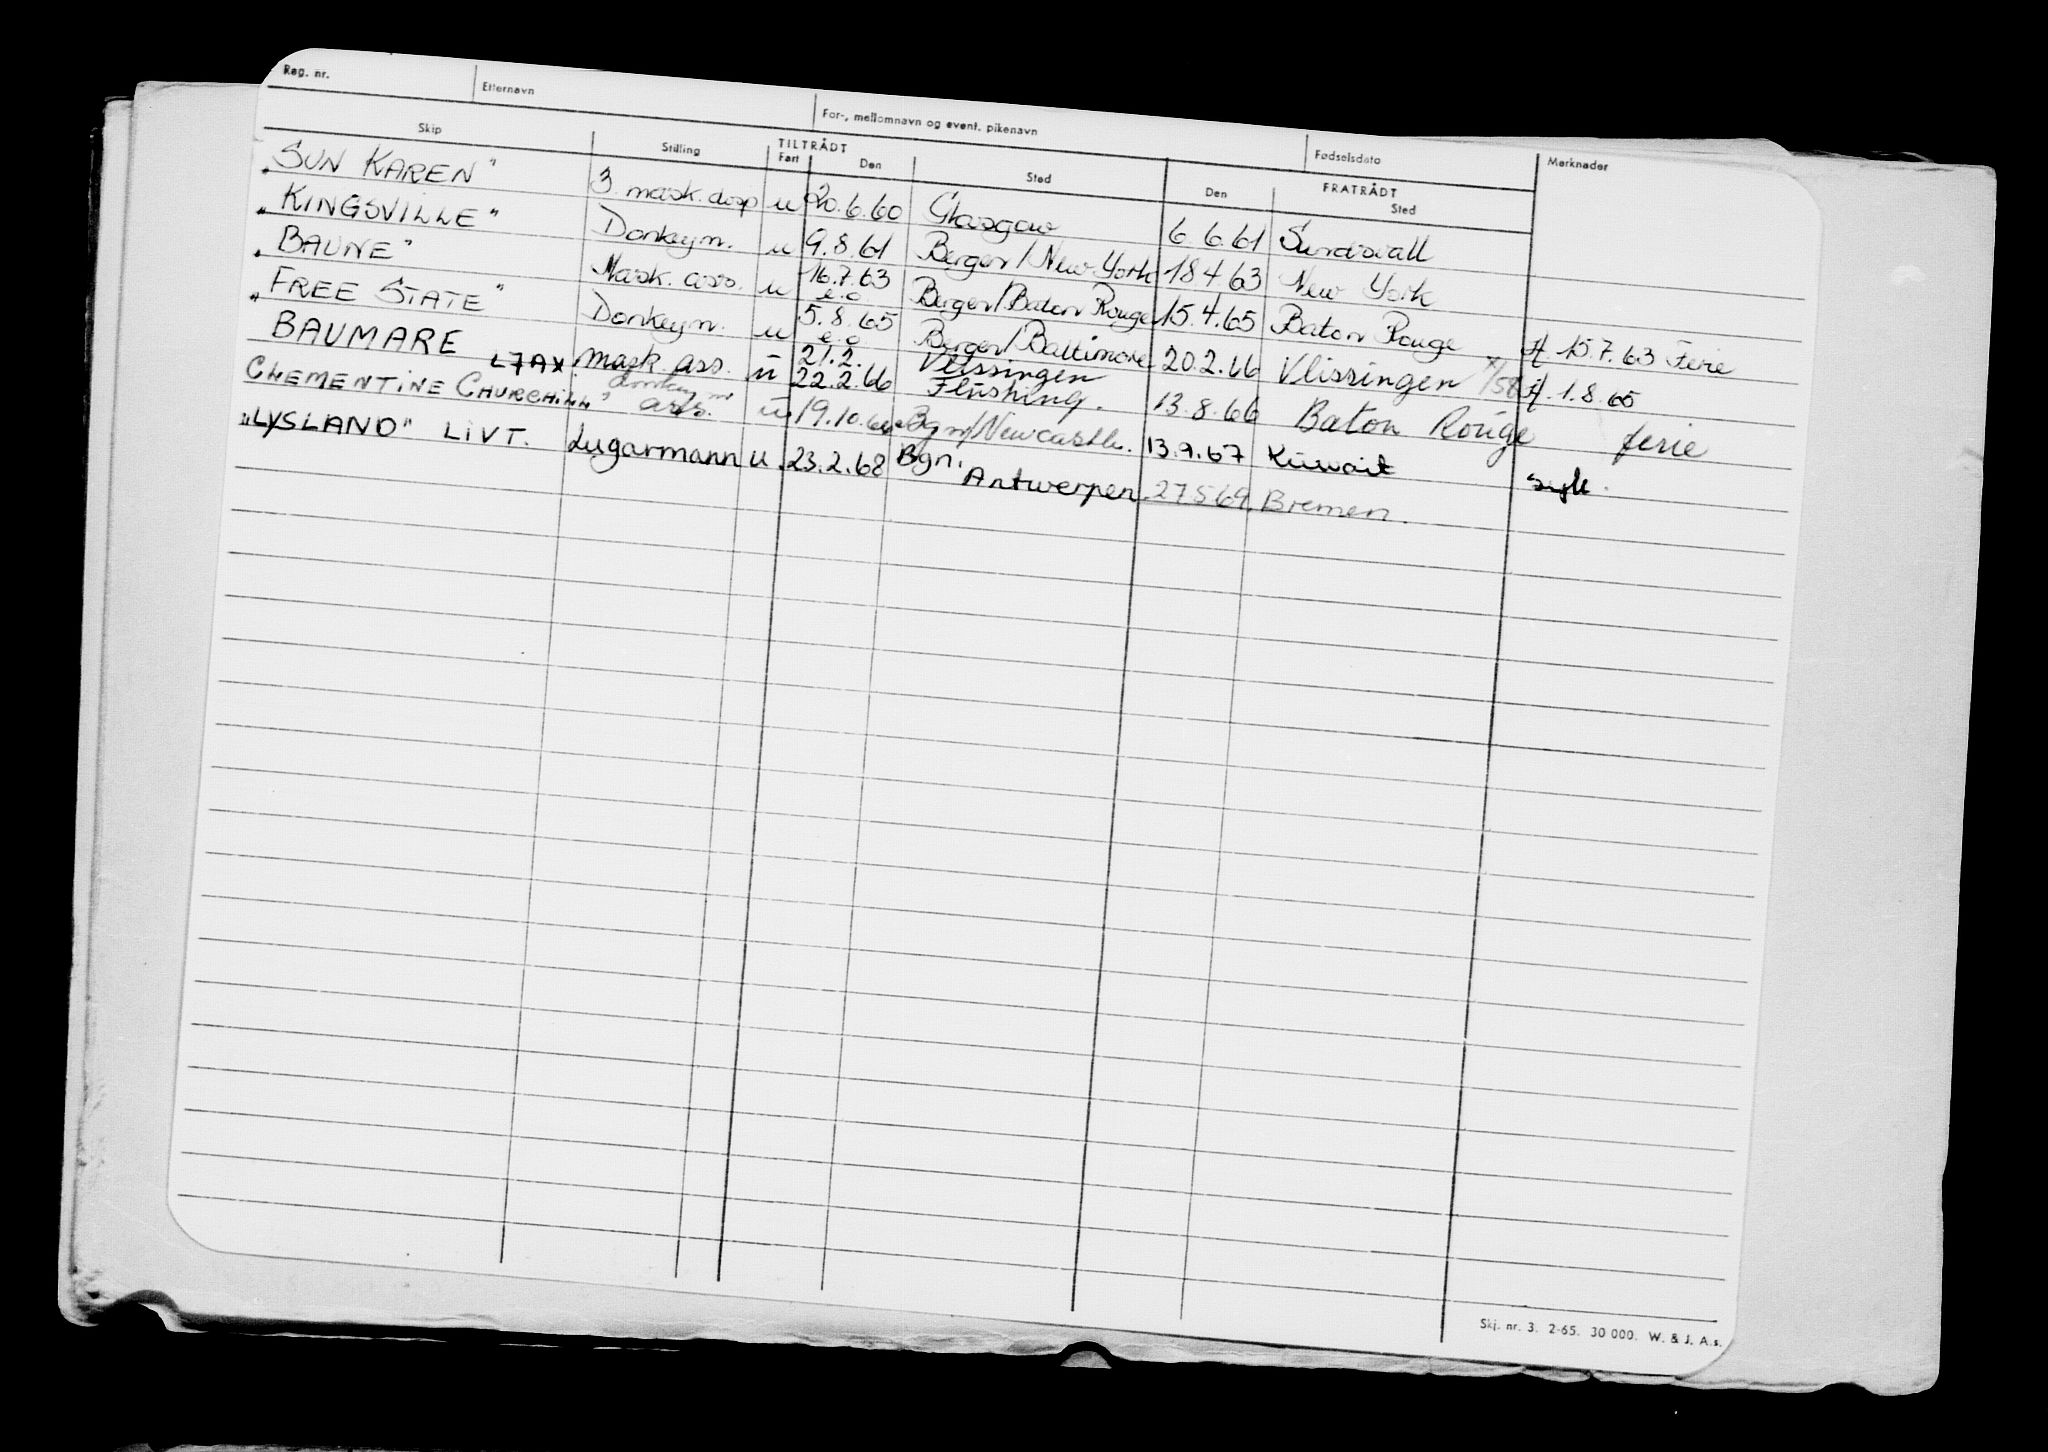 Reg. nr. Etternavn For-, mellomnavn og event. pikenavn Fødselsdato Merknader
Skip Stilling TILTRÅDT Fart Den Sted FRATRÅDT Den Sted
"SUN KAREN" 3. mask. asp u 20.6.60 Glasgow 6.6.61 Sundsvall
"KINGSVILLE" Donkeym. u 9.8.61 Bergen/New York 18.4.63 New York
"BAUNE" Mask. ass. u 16.7.63 e.o Bergen/Baton Rouge 15.4.65 Baton Rouge A 15.7.63 Ferie
"FREE STATE" Donkeym. u 5.8.65 e.o Bergen/Baltimore 20.2.66 Vlissingen A. 1.8.65
BAUMARE LJAX mask. ass. u 21.2. 22.2.66 Vlissingen Flushing. 13.8.66 Baton Rouge ferie
CLEMENTINE CHURCHILL" donkeym ass. u 19.10.66 Bgn/Newcastle. 13.9.67 Kuwait syk.
"LYSLAND" LIVT. Lugarmann u. 23.2.68 Bgn. Antwerpen. 27.5.69. Bremen.
Skj. nr. 3. 2-65. 30 000. W. & J. A.s.